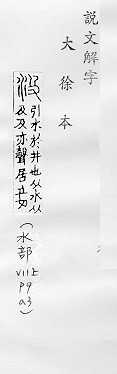 說文解字
大徐本
汲
引水於井也从水从
及及亦聲居立切
(水部
VII上
P9
a3)